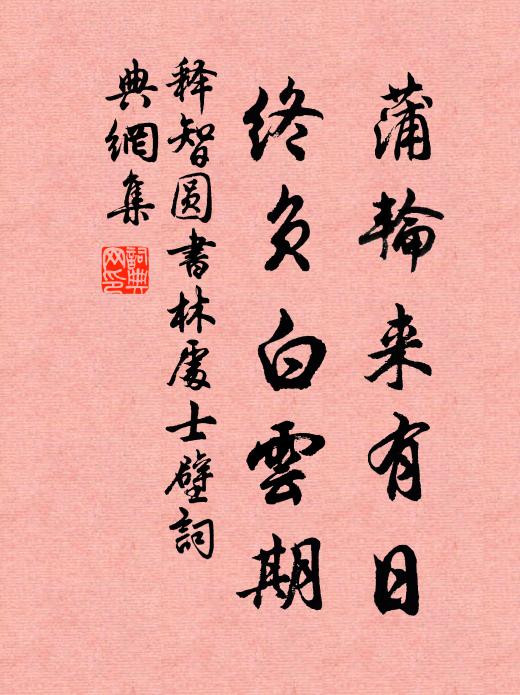 蒲輪来有日
終負白雲期
释智圆書林處士壁詞
典網集
詞典網印